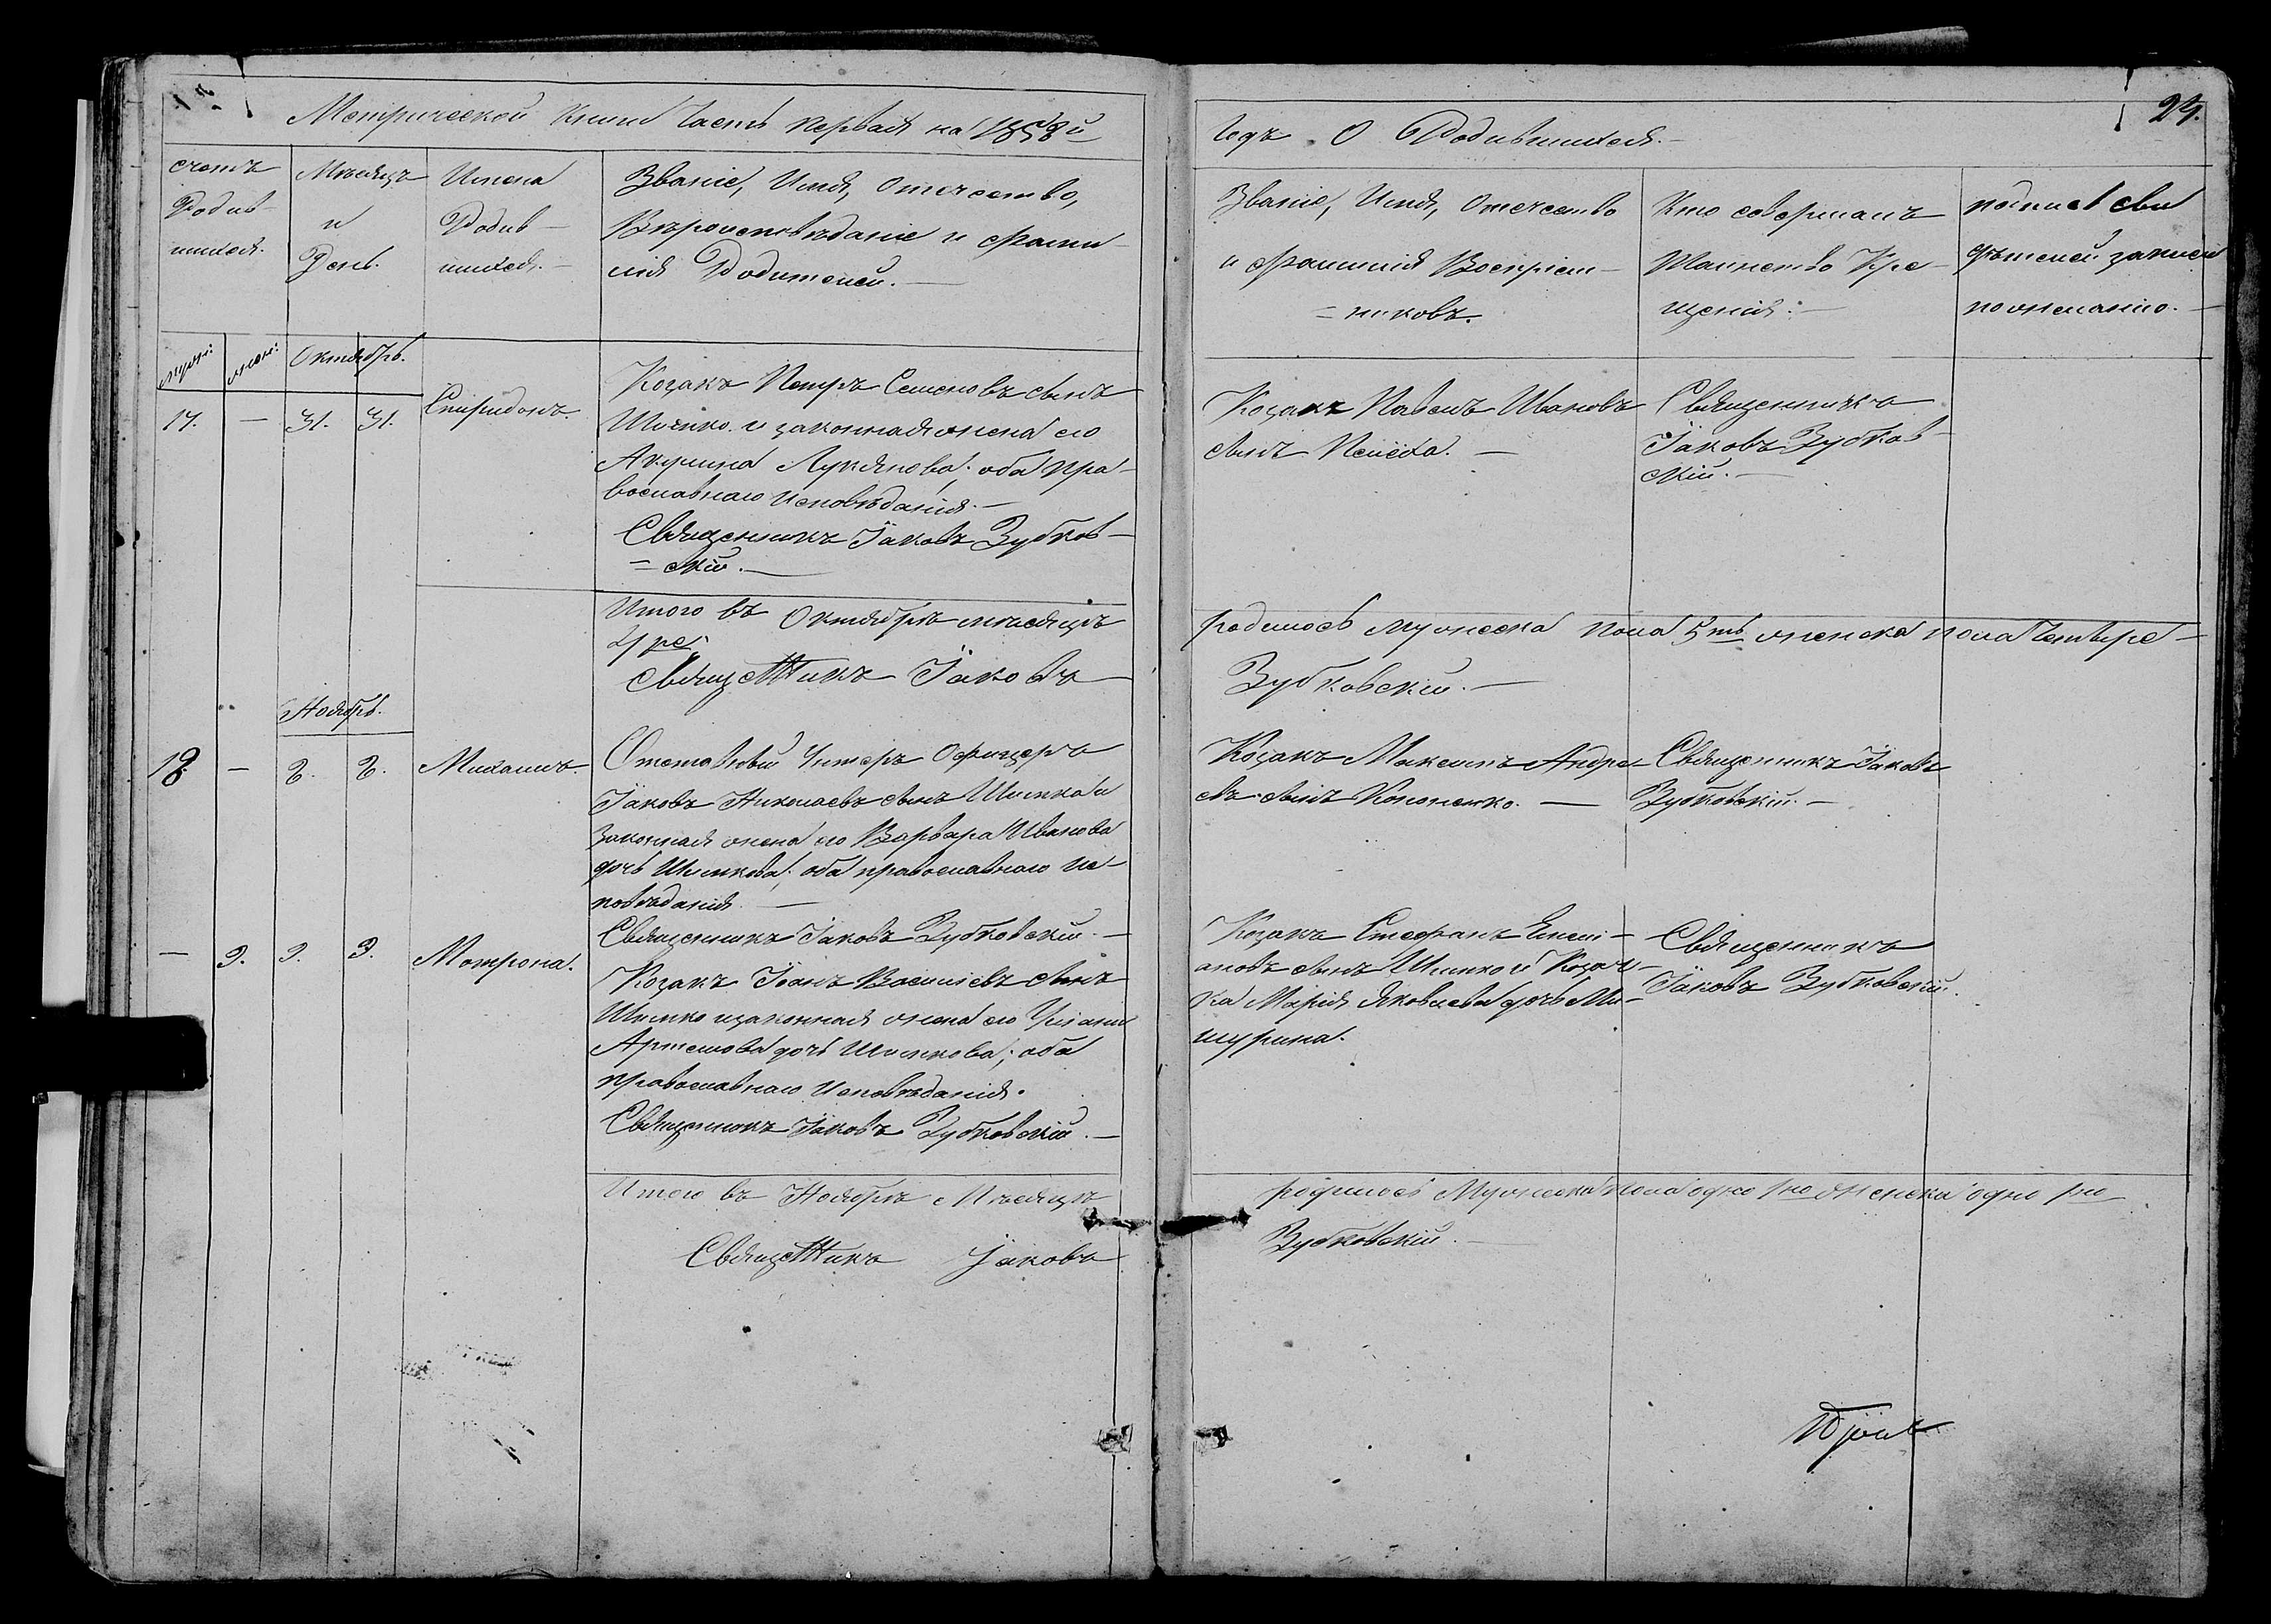 Метрической Книги Часть первая на 1858й
годъ. О Родившихся.
24.
счетъ
Родив-
шихся.
Мѣсяцъ
и
День.
Имена
Родив-
шихся.
Званіе, Имя, Отечество,
Вѣроисповѣданіе и Фами-
лія Родителей.
Званіе, Имя, Отечество
и Фамилія Воспріем-
=никовъ.
Кто совершалъ
Таинство Кре-
щенія:
подпись сви
дѣтелей записи
по желанію.
муж:
жен:
Октябрь.
17. — 31. 31.
Спиридонъ.
Козакъ Петръ Семеновъ сынъ
и законная жена его
Акулина Лукянова; оба пра-
вославнаго исповѣданія.
Священникъ Іаковъ Зубков-
=скій.
Козакъ Павелъ Ивановъ
сынъ
Священникъ
Іаковъ Зубков-
скій.
Итого въ Октябрѣ мѣсяцѣ
родилось мужеска пола 5ть женска пола Четыре
4ре
Священникъ Іаковъ
Зубковскій.
Ноябрь.
18. — 8. 8.
Михаилъ.
Отставной Унтеръ Офицеръ
Іаковъ Николаевъ сынъ Шимко и
законная жена его Варвара Иванова
дочь Шимкова; оба православнаго ис-
повѣданія
Священникъ Іаковъ Зубковскій.
Козакъ Максимъ Андре-
евъ сынъ Кононенко.
Священникъ Іаковъ
Зубковскій.
— 9. 9. 9.
Мотрона.
Козакъ Іоанъ Василіевъ сынъ
Шимко и законная жена его
Артемова дочь Шимкова; оба
православнаго исповѣданія.
Священникъ Іаковъ Зубковскій.
Козакъ Стефанъ
сынъ Шимко и Козач-
ка Марія Яковлева дочь Ми-
шурина.
Священникъ
Іаковъ Зубковскій.
Итого въ Ноябрѣ Мѣсяцѣ
родилось Мужеска пола одно 1но женска одно 1но
Священникъ Іаковъ
Зубковскій.